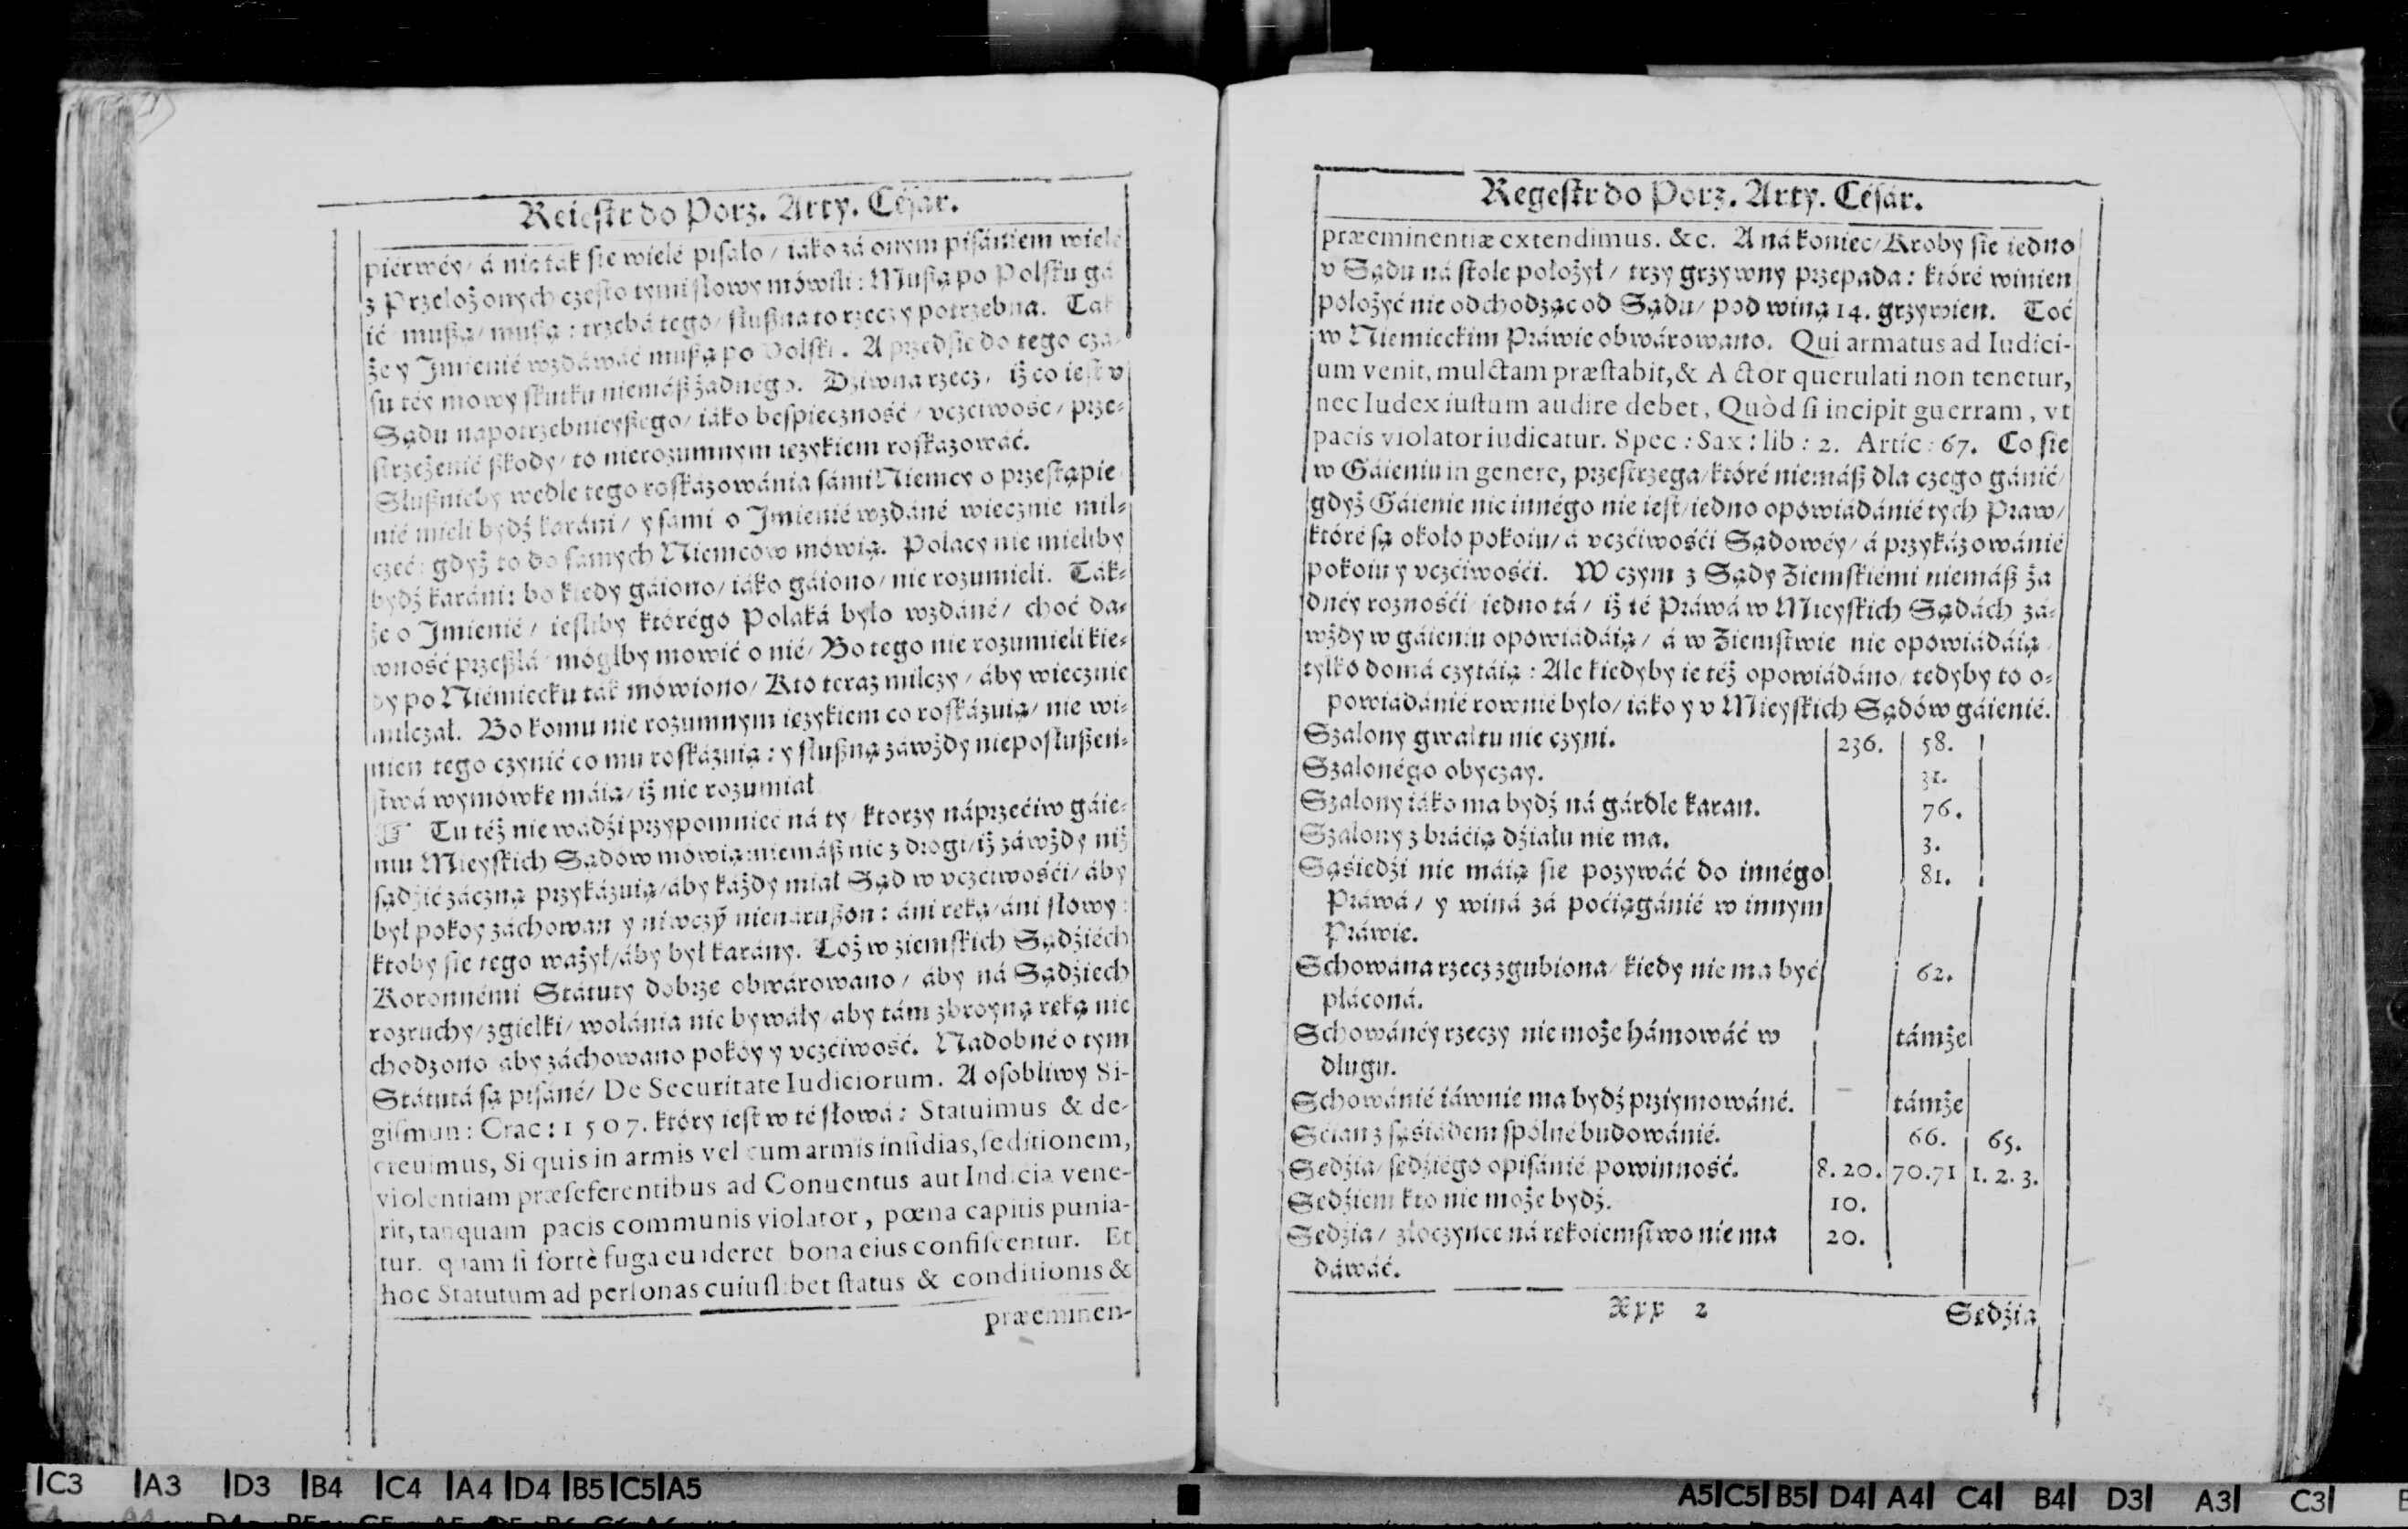 Reiestr do Porz. Arty. Césár.
piérwéy / á nie ták sie wielé pisało / iáko zá onym pisániem wielé
z Przełożonych często tymi słowy mówili: Muszą po Polsku gá
ić muszą / muszą: trzebá tego / słuszna to rzecz y potrzebna. Tak
że y Jmienié wzdáwáć muszą po Polsku. A przedsię do tego cza-
su téy mowy skutku niemász żadnégo. Dziwna rzecz / iż co iest v
Sądu napotrzebnieyszégo / iáko bespieczność / vczciwość / prze-
strzeżenié szkody / to nierozumnym ięzykiem roskazowáć.
Słusznieby wedle tego roskázowánia sámi Niemcy o przestąpie
nié mieli bydź karáni / y sami o Jmienié wzdáné wiecznie mil-
czeć: gdyż to do samych Niemców mówią. Polacy nie mieliby
bydź karáni: bo kiedy gáiono / iáko gáiono / nie rozumieli. Ták-
że o Jmienié / iesliby którégo Polaká było wzdáné / choć da-
wność przeszlá / mógłby mowić o nié / Bo tego nie rozumieli kie-
dy po Niémiecku ták mówiono / Kto teraz milczy / áby wiecznie
milczał. Bo komu nie rozumnym ięzykiem co roskázuią / nie wi-
nien tego czynić co mu roskázuią: y słuszną záwżdy nieposłuszeń-
stwá wymówkę máią / iż nie rozumiał
☞ Tu téż nie wádźi przypomnieć ná ty / ktorzy náprzećiw gáie-
niu Mieyskich Sądów mówią: niemász nic z drogi / iż záwżdy niż
sądźić záczną przykázuią / áby każdy miał Sąd w vczciwośći / áby
był pokoy záchowan y niwczỹ nienáruszon: áni ręką / áni słowy:
ktoby sie tego ważył / áby był karány. Toż w ziemskich Sądźiéch
Koronnémi Státuty dobrze obwárowano / áby ná Sądźiech
rozruchy / zgiełki / wołánia nie bywáły / aby tám zbroyną ręką nie
chodzono aby záchowano pokóy y vczćiwość. Nadobné o tym
Státutá są pisáné / De Securitate Iudiciorum. A osobliwy Si-
gismun: Crac: 1507. który iest w té słowá: Statuimus & de-
creuimus, Si quis in armis vel cum armis insidias, seditionem,
violentiam præseferentibus ad Conuentus aut Indicia vene-
rit, tanquam pacis communis violator, pœna capitis punia-
tur. quam si fortè fuga euaderet bona eius confiscentur. Et
hoc Statutum ad personas cuiuslibet status & conditionis &
præeminen-
Regestr do Porz. Arty. Césár.
præeminentiæ extendimus. &c. A ná koniec / Ktoby sie iedno
v Sądu ná stole położył / trzy grzywny przepada: któré winien
położyć nie odchodząc od Sądu / pod winą 14. grzywien. Toć
w Niemieckim Práwie obwárowano. Qui armatus ad Iudici-
um venit, mulctam præstabit, & Actor querulati non tenetur,
nec Iudex iustum audire debet, Quòd si incipit guerram, vt
pacis violator iudicatur. Spec: Sax: lib: 2. Artic: 67. Co sie
w Gáieniu in genere, przestrzega / któré niemász dla czego gánić /
gdyż Gáienie nic innégo nie iest / iedno opówiádánié tych Praw /
któré są około pokoiu / á vczćiwośći Sądowéy / á przykázowánié
pokoiu y vczćiwośći. W czym z Sądy Ziemskiémi niemász ża
dnéy roznośći iedno tá / iż té Práwá w Mieyskich Sądách zá-
wżdy w gáieniu opowiádáią / á w Ziemstwie nie opowiádáią /
tylko domá czytáią: Ale kiedyby ie téż opowiádáno / tedyby to o-
powiádánié rownié było / iáko y v Mieyskich Sądów gáienié.
Szalony gwałtu nie czyni. 236. 58.
Szalonégo obyczay. 31.
Szalony iáko ma bydź ná gárdle karan. 76.
Szalony z bráćią dźiału nie ma. 3.
Sąśiedźi nie máią sie pozywáć do innégo 81.
Práwá / y winá zá poćiągánié w innym
Práwie.
Schowána rzecz zgubiona / kiedy nie ma być 62.
płáconá.
Schowánéy rzeczy nie może hámowáć w támże
długu.
Schowánié iáwnie ma bydź przyimowáné. támże
Scian z sąśiádem spólné budowánié. 66. 65.
Sędźia / sędźiégo opisánié powinność. 8. 20. 70. 71 1. 2. 3.
Sędźiem kto nie może bydź. 10.
Sędźia / złoczyńcę ná rękoiemstwo nie ma 20.
dáwáć.
Xxx 2 Sędźia